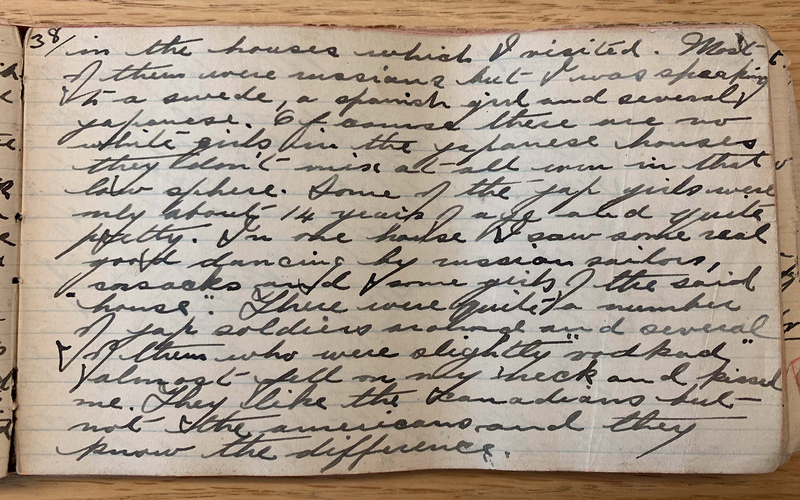 38/ in the houses which I visited. Most
of them were russians but I was speaking
to a swede, a spanish girl and several
japanese. Of course there are no
white girls in the japanese houses
they don't mix at all even in that
low sphere. Some of the jap girls were
only about 14 years of age and quite
pretty. In one house I saw some real
good dancing by russian sailors,
cossacks and some girls of the said
"house". There were quite a number
of jap soldiers around and several
of them who were slightly "vodkad"
almost fell on my neck and kissed
me. They like the Canadians but
not the americans and they
know the difference.